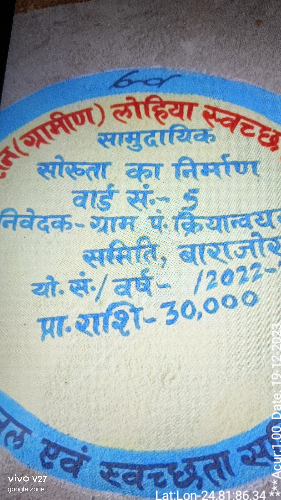 (ग्रामीण) लोहिया स्वच्छ
सामुदायिक
सोख्ता का निर्माण
वार्ड सं:- 5
निवेदक- ग्राम पं. क्रियान्वय
समिति, बाराजोर
यो. सं./ वर्ष- /2022-
प्रा. राशि- 30,000
एवं स्वच्छता
vivo V27
google zone
Lat:Lon-24.81:86.34 *** Acur:1.00, Date: 19-12-2023